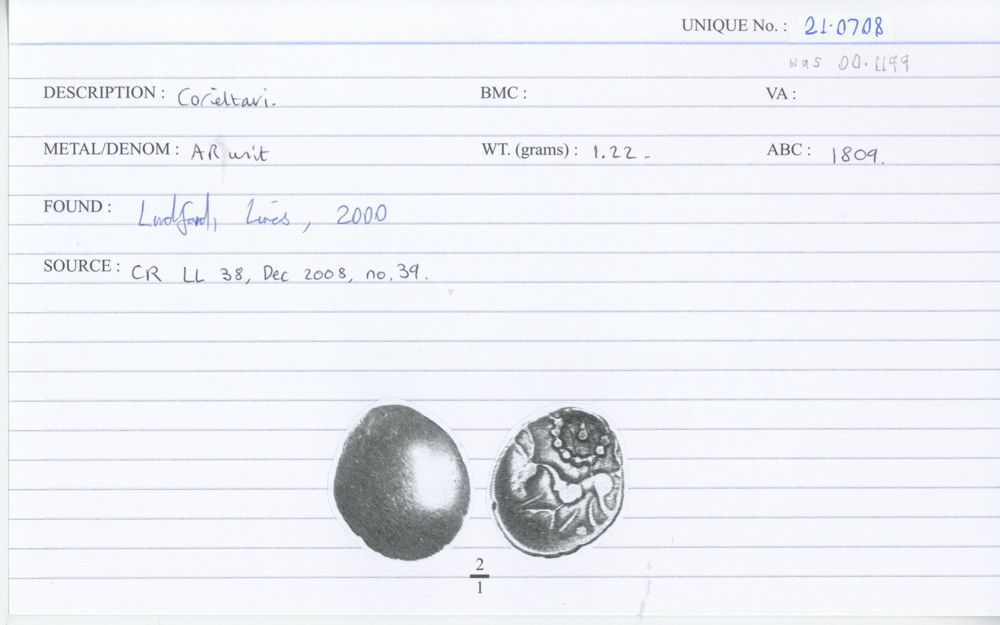 UNIQUE No. : 21.0708
was 00.1199
DESCRIPTION : Corieltavi. BMC : VA :
METAL/DENOM : AR unit WT. (grams) : 1.22 - ABC : 1809.
FOUND : Ludford, Lincs, 2000
SOURCE : CR LL 38, Dec 2008, no. 39.
2
1